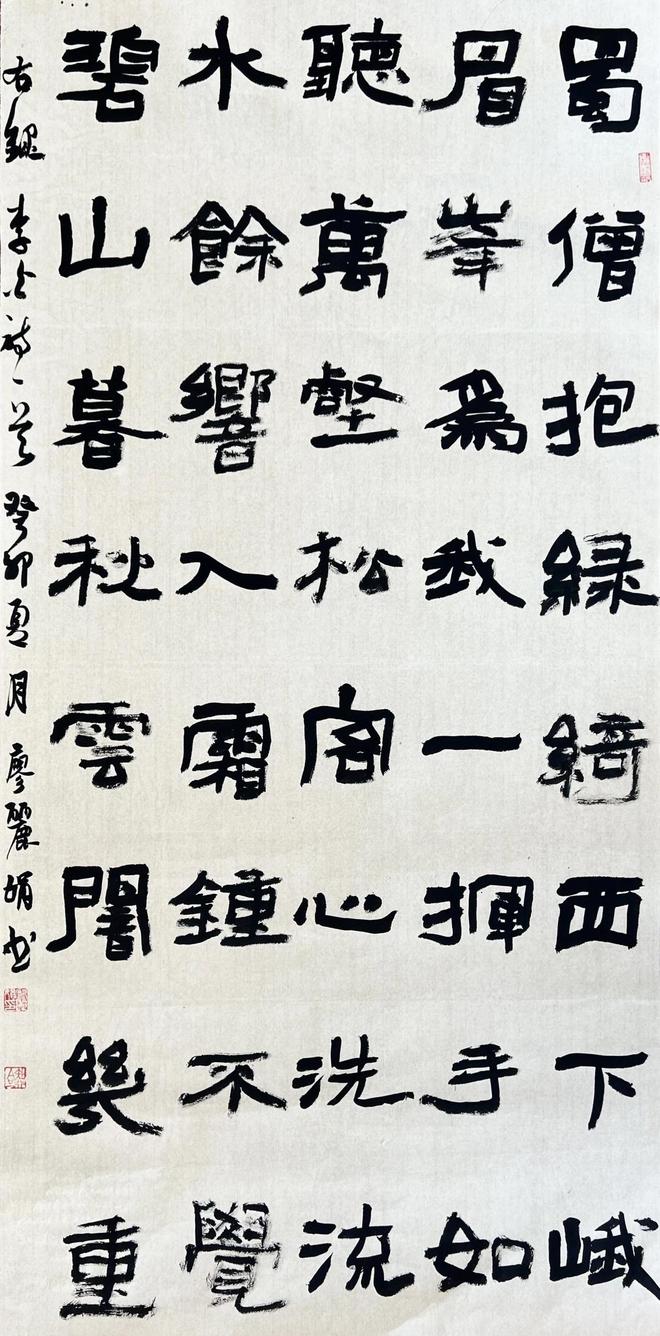 蜀僧抱綠綺西下峨
眉峯爲我一揮手如
聽萬壑松客心洗流
水餘響入霜鍾不覺
碧山暮秋雲闇幾重
右錄李白詩一首癸卯夏月廖麗娟书